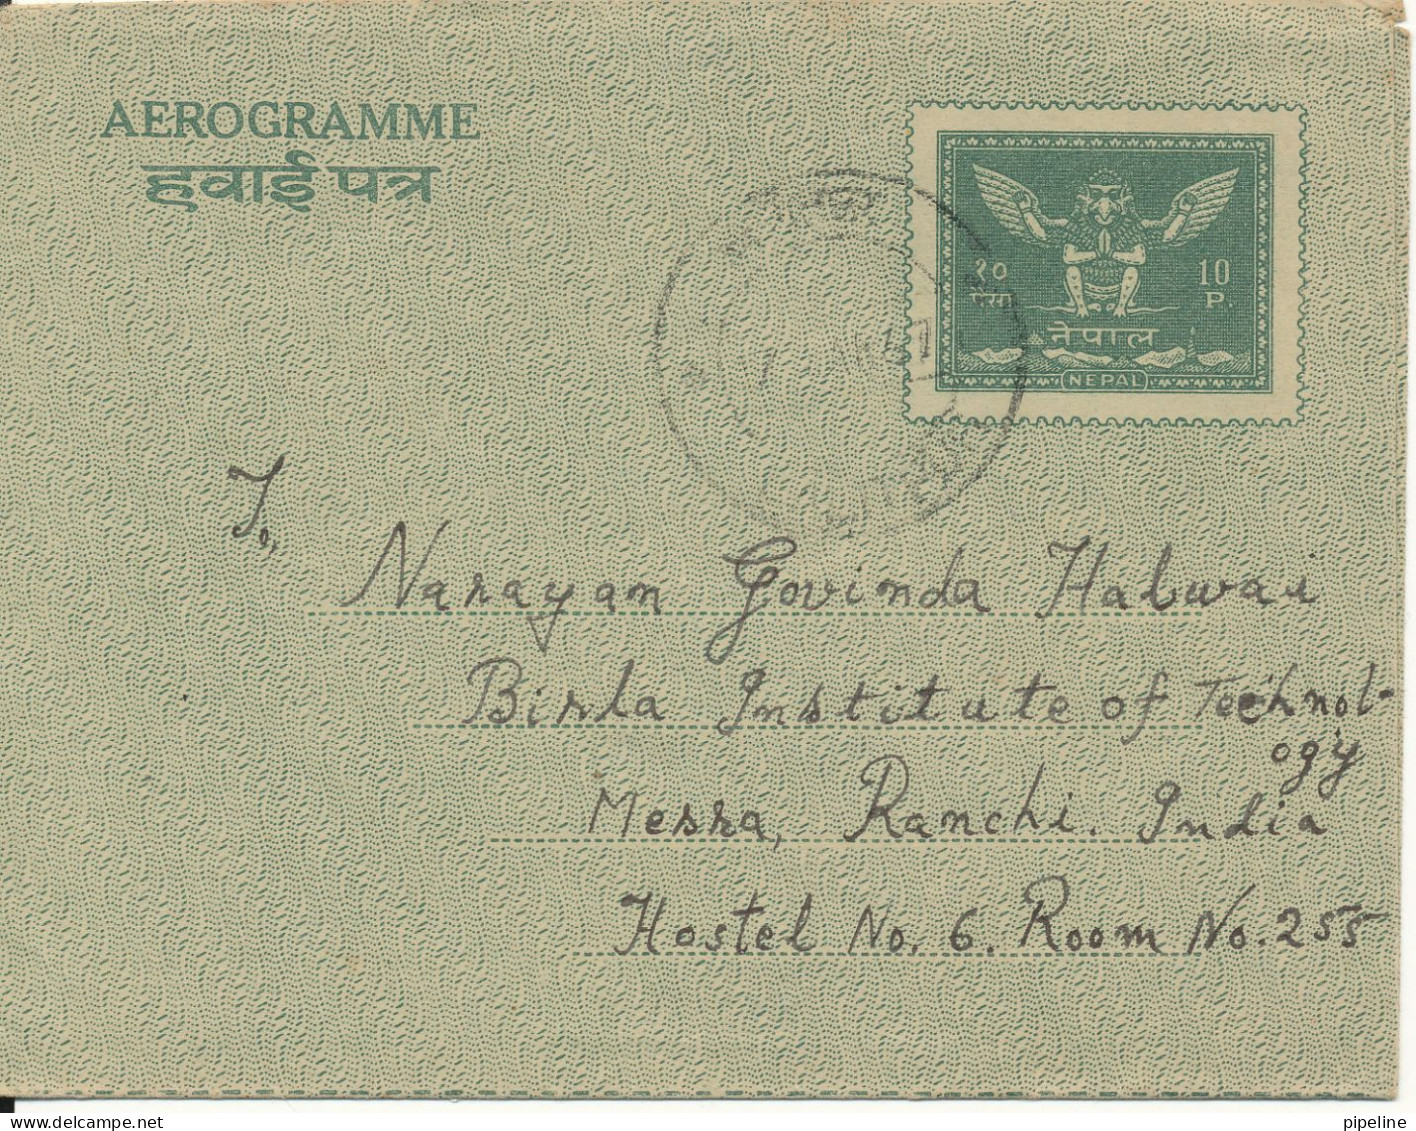 AEROGRAMME
हवाई पत्र
१० पैसा
10 P.
नेपाल
NEPAL
To,
Narayan Govinda Halwai
Birla Institute of Technol-
ogy
Mesra, Ranchi. India
Hostel No. 6. Room No. 255
pipeline